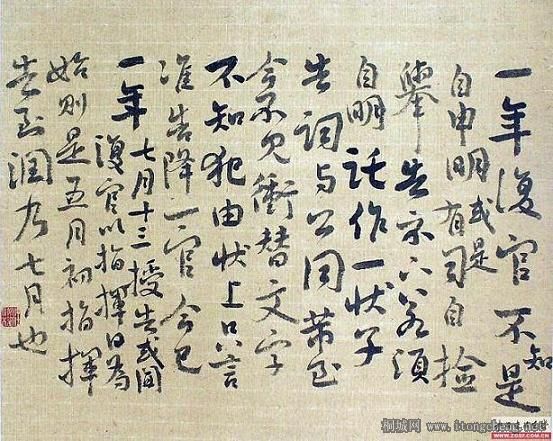 一年復官不知是
自申明或是有司自撿
舉告示須
自明託作一狀子
告詞与公同
今不見衝替文字
不知犯由狀上只言
准告降一官今已
一年七月十三授告或聞
復官以指揮日為
始則是五月初指揮
告至潤乃七月也
桐城网 www.itongcheng.net
WWW.ZGSF.COM.CN